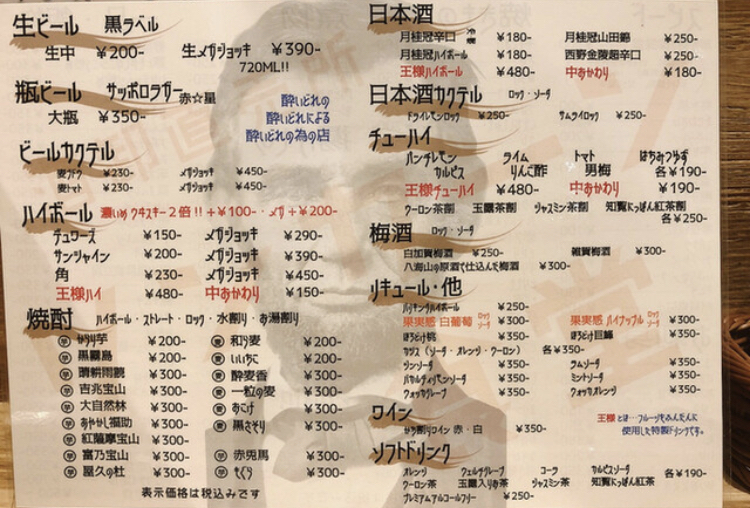 生ビール 黒ラベル
生中 ¥200-
生メガジョッキ ¥390-
720ML!!
瓶ビール サッポロラガー赤☆星
大瓶 ¥350-
酔いどれの
酔いどれによる
酔いどれの為の店
ビールカクテル
麦ブドウ ¥230- メガジョッキ ¥450-
麦トマト ¥230- メガジョッキ ¥450-
ハイボール 濃いめ ウヰスキー2倍!!+¥100-・メガ+¥200-
デュワーズ ¥150- メガジョッキ ¥290-
サンシャイン ¥200- メガジョッキ ¥390-
角 ¥230- メガジョッキ ¥450-
王様ハイ ¥480- 中おかわり ¥150-
焼酎 ハイボール・ストレート・ロック・水割り・お湯割り
芋 かりり芋 ¥200-
芋 黒霧島 ¥200-
芋 晴耕雨読 ¥300-
芋 吉兆宝山 ¥300-
芋 大自然林 ¥300-
芋 あやかし福助 ¥300-
芋 紅薩摩宝山 ¥300-
芋 富乃宝山 ¥300-
芋 屋久の杜 ¥300-
麦 和ら麦 ¥200-
麦 いいちこ ¥200-
麦 酔麦香 ¥300-
麦 一粒の麦 ¥300-
麦 おこげ ¥300-
黒さそり ¥300-
赤兎馬 ¥300-
¥300-
表示価格は税込みです
日本酒
月桂冠辛口 冷 燗 ¥180- 月桂冠山田錦 ¥250-
月桂冠ハイボール ¥180- 西野金陵超辛口 ¥250-
王様ハイボール ¥480- 中おかわり ¥180-
日本酒カクテル ロック・ソーダ
ドライレモンロック ¥250- サムライロック ¥250-
チューハイ
パンチレモン ライム トマト はちみつゆず
カルピス りんご酢 男梅 各¥190-
王様チューハイ ¥480- 中おかわり ¥190-
ウーロン茶割 玉露茶割 ジャスミン茶割 知覧にっぽん紅茶割
各¥250-
梅酒 ロック・ソーダ
白加賀梅酒 ¥250- 雑賀梅酒 ¥300-
八海山の原酒で仕込んだ梅酒 ¥300-
リキュール・他
パッキンハイボール ¥250-
果実感 白葡萄 ロック ソーダ ¥300- 果実感 パイナップル ロック ソーダ ¥300-
ほろどけ桃 ¥350- ほろどけ巨峰 ¥350-
カシス(ソーダ・オレンジ・ウーロン) 各¥350-
ジンソーダ ¥350- ラムソーダ ¥350-
¥350- ミントソーダ ¥350-
ウォッカグレープ ¥350- ウォッカオレンジ ¥350-
ワイン
かち割りワイン 赤・白 ¥350-
王様とは…フルーツをふんだんに
使用した特製ドリンクです。
ソフトドリンク
オレンジ ウェルチグレープ コーラ カルピスソーダ 各¥190-
ウーロン茶 玉露入りお茶 ジャスミン茶 知覧にっぽん紅茶
プレミアムアルコールフリー ¥250-